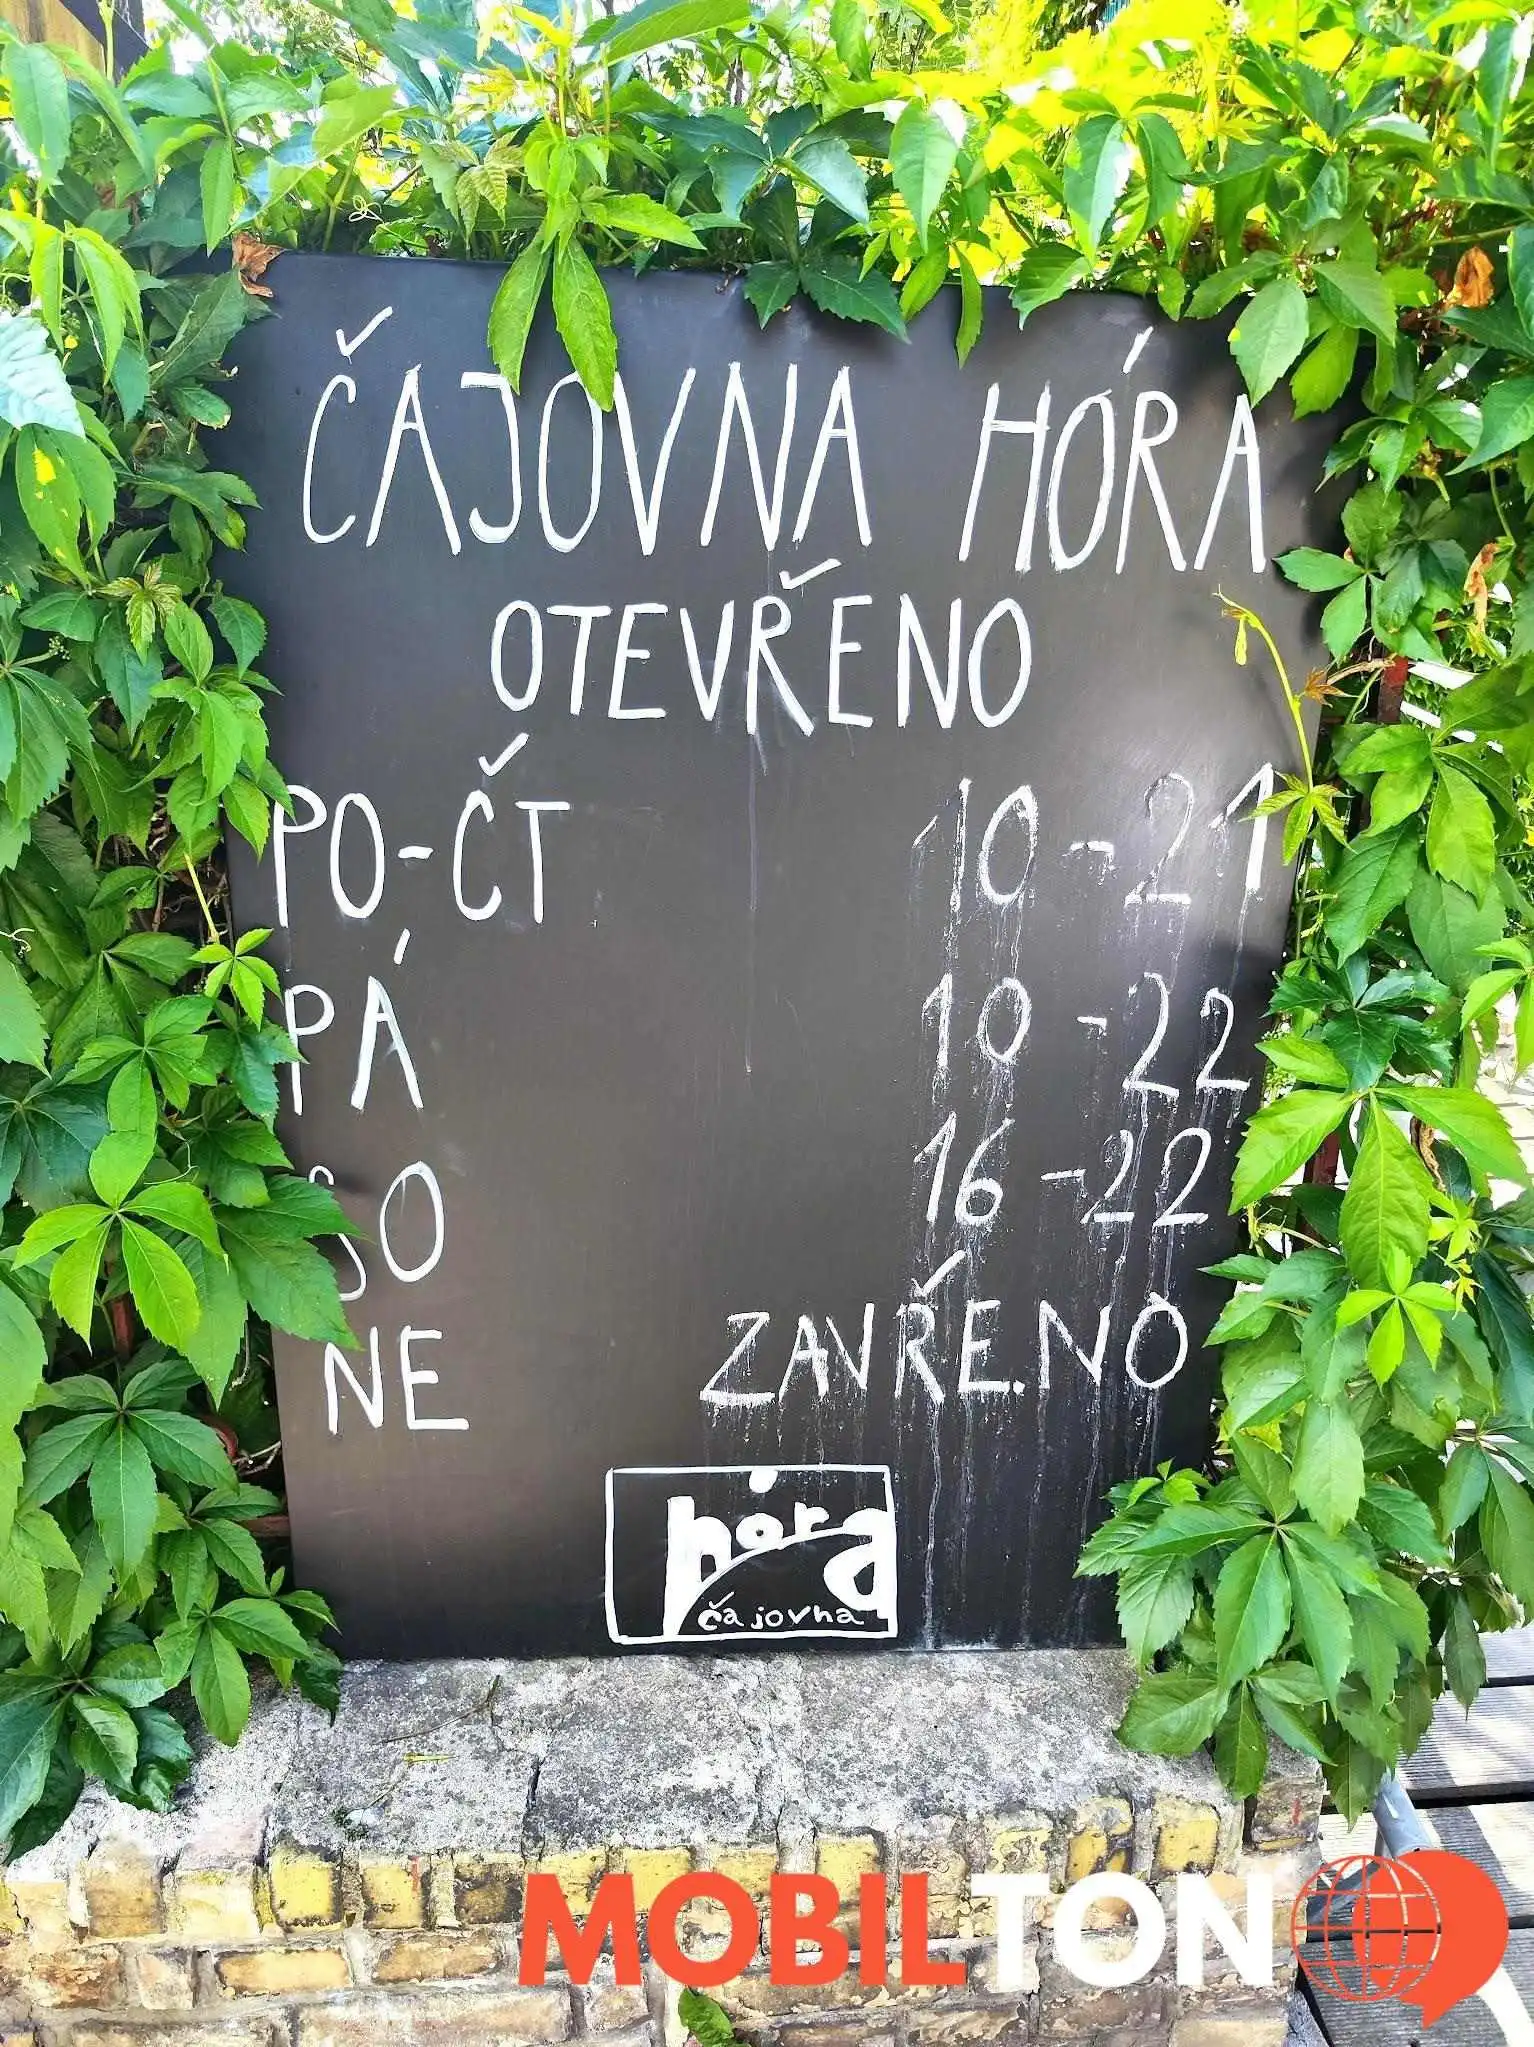 ČAJOVNA HÓRA
OTEVŘENO
PO-ČT 10-21
PÁ 10-22
SO 16-22
NE ZAVŘENO
hóra
čajovna
MOBILTON